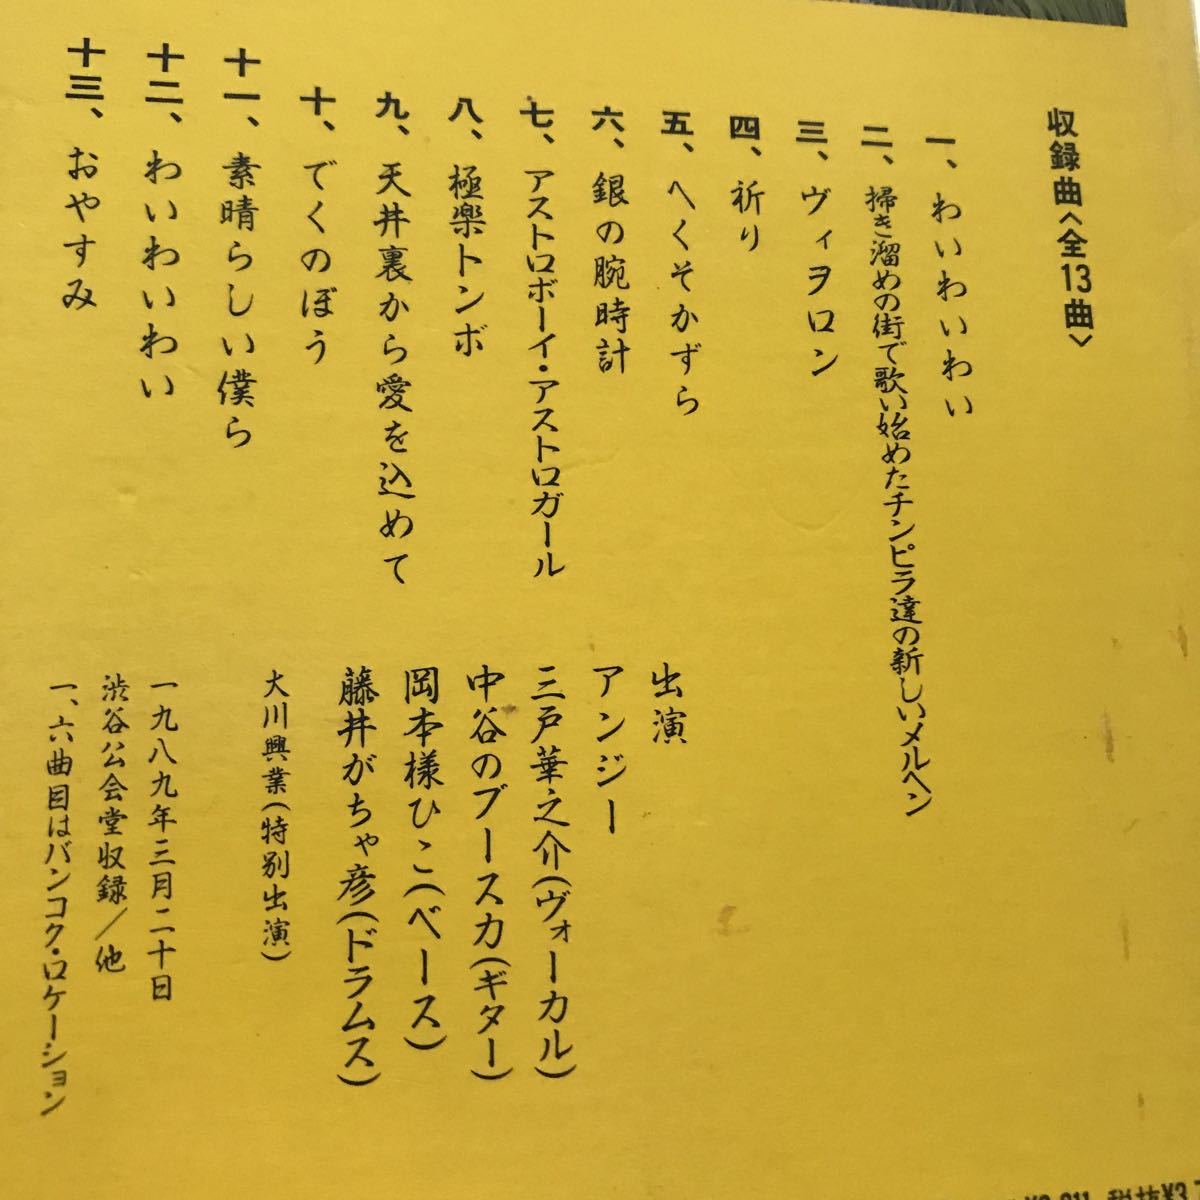 収録曲〈全13曲〉
一、わいわいわい
二、掃き溜めの街で歌い始めたチンピラ達の新しいメルヘン
三、ヴィヲロン
四、祈り
五、へくそかずら
六、銀の腕時計
七、アストロボーイ・アストロガール
八、極楽トンボ
九、天井裏から愛を込めて
十、でくのぼう
十一、素晴らしい僕ら
十二、わいわいわい
十三、おやすみ
出演
アンジー
三戸華之介(ヴォーカル)
中谷のブースカ(ギター)
岡本様ひこ(ベース)
藤井がちゃ彦(ドラムス)
大川興業(特別出演)
一九八九年三月二十日
渋谷公会堂収録/他
一、六曲目はバンコク・ロケーション